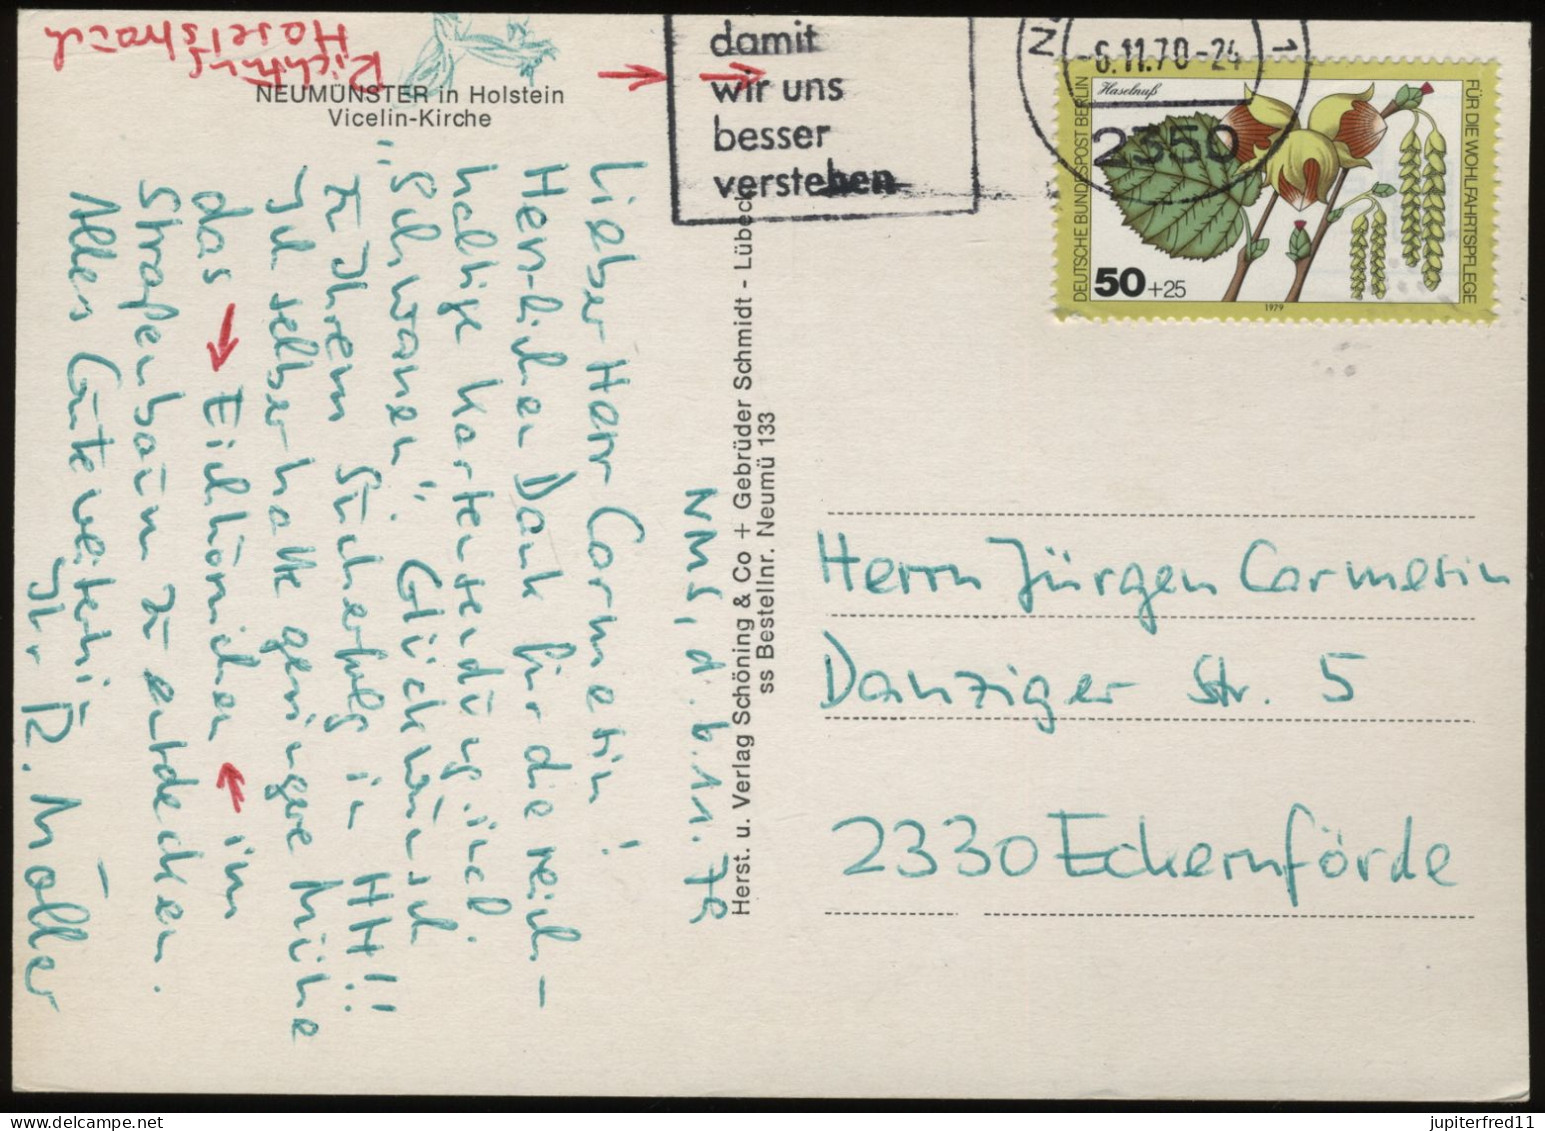 Richtung
Haselstrauch
NEUMÜNSTER in Holstein
Vicelin-Kirche
NMS, d. 6.11.79
Lieber Herr Carmesin!
Herzlichen Dank für die reich-
haltige Kartensendung incl.
"Schwanen". Glückwunsch
zu Ihrem Sucherfolg in HH!!
Ich selber hatte geringere Mühe
das → Eichhörnchen ← im
Straßenbaum zu entdecken.
Alles Gute weiterhin
Ihr R. Möller
Herst. u. Verlag Schöning & Co + Gebrüder Schmidt - Lübeck
ss Bestellnr. Neumü 133
damit
wir uns
besser
verstehen
-6.11.79-24
1
2350
Haselnuß
DEUTSCHE BUNDESPOST BERLIN
FÜR DIE WOHLFAHRTSPFLEGE
50+25
1979
Herrn Jürgen Carmesin
Danziger Str. 5
2330 Eckernförde
www.delcampe.net
jupiterfred11